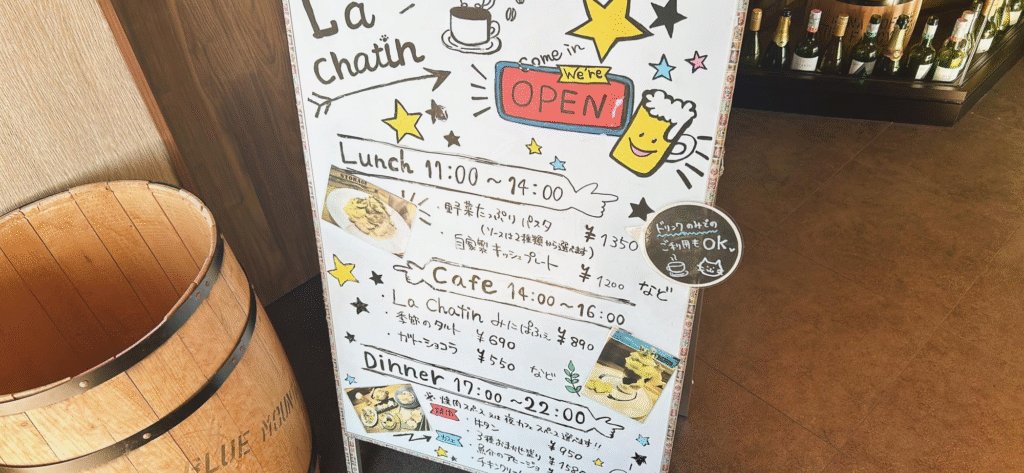 La
chatin
come in
We're
OPEN
Lunch 11:00～14:00
・野菜たっぷりパスタ ¥1350
(ソースは2種類から選べます)
・自家製キッシュプレート ¥1200 など
ドリンクのみでの
ご利用も OK
Cafe 14:00～16:00
・La Chatin みにぱふぇ ¥890
・季節のタルト ¥690
・ガトーショコラ ¥550 など
Dinner 17:00～22:00
※焼肉スペース又は夜カフェスペース選べます!!
・牛タン ¥950
カフェ
・3種おまかせ盛り ¥1580
BLUE MOUN